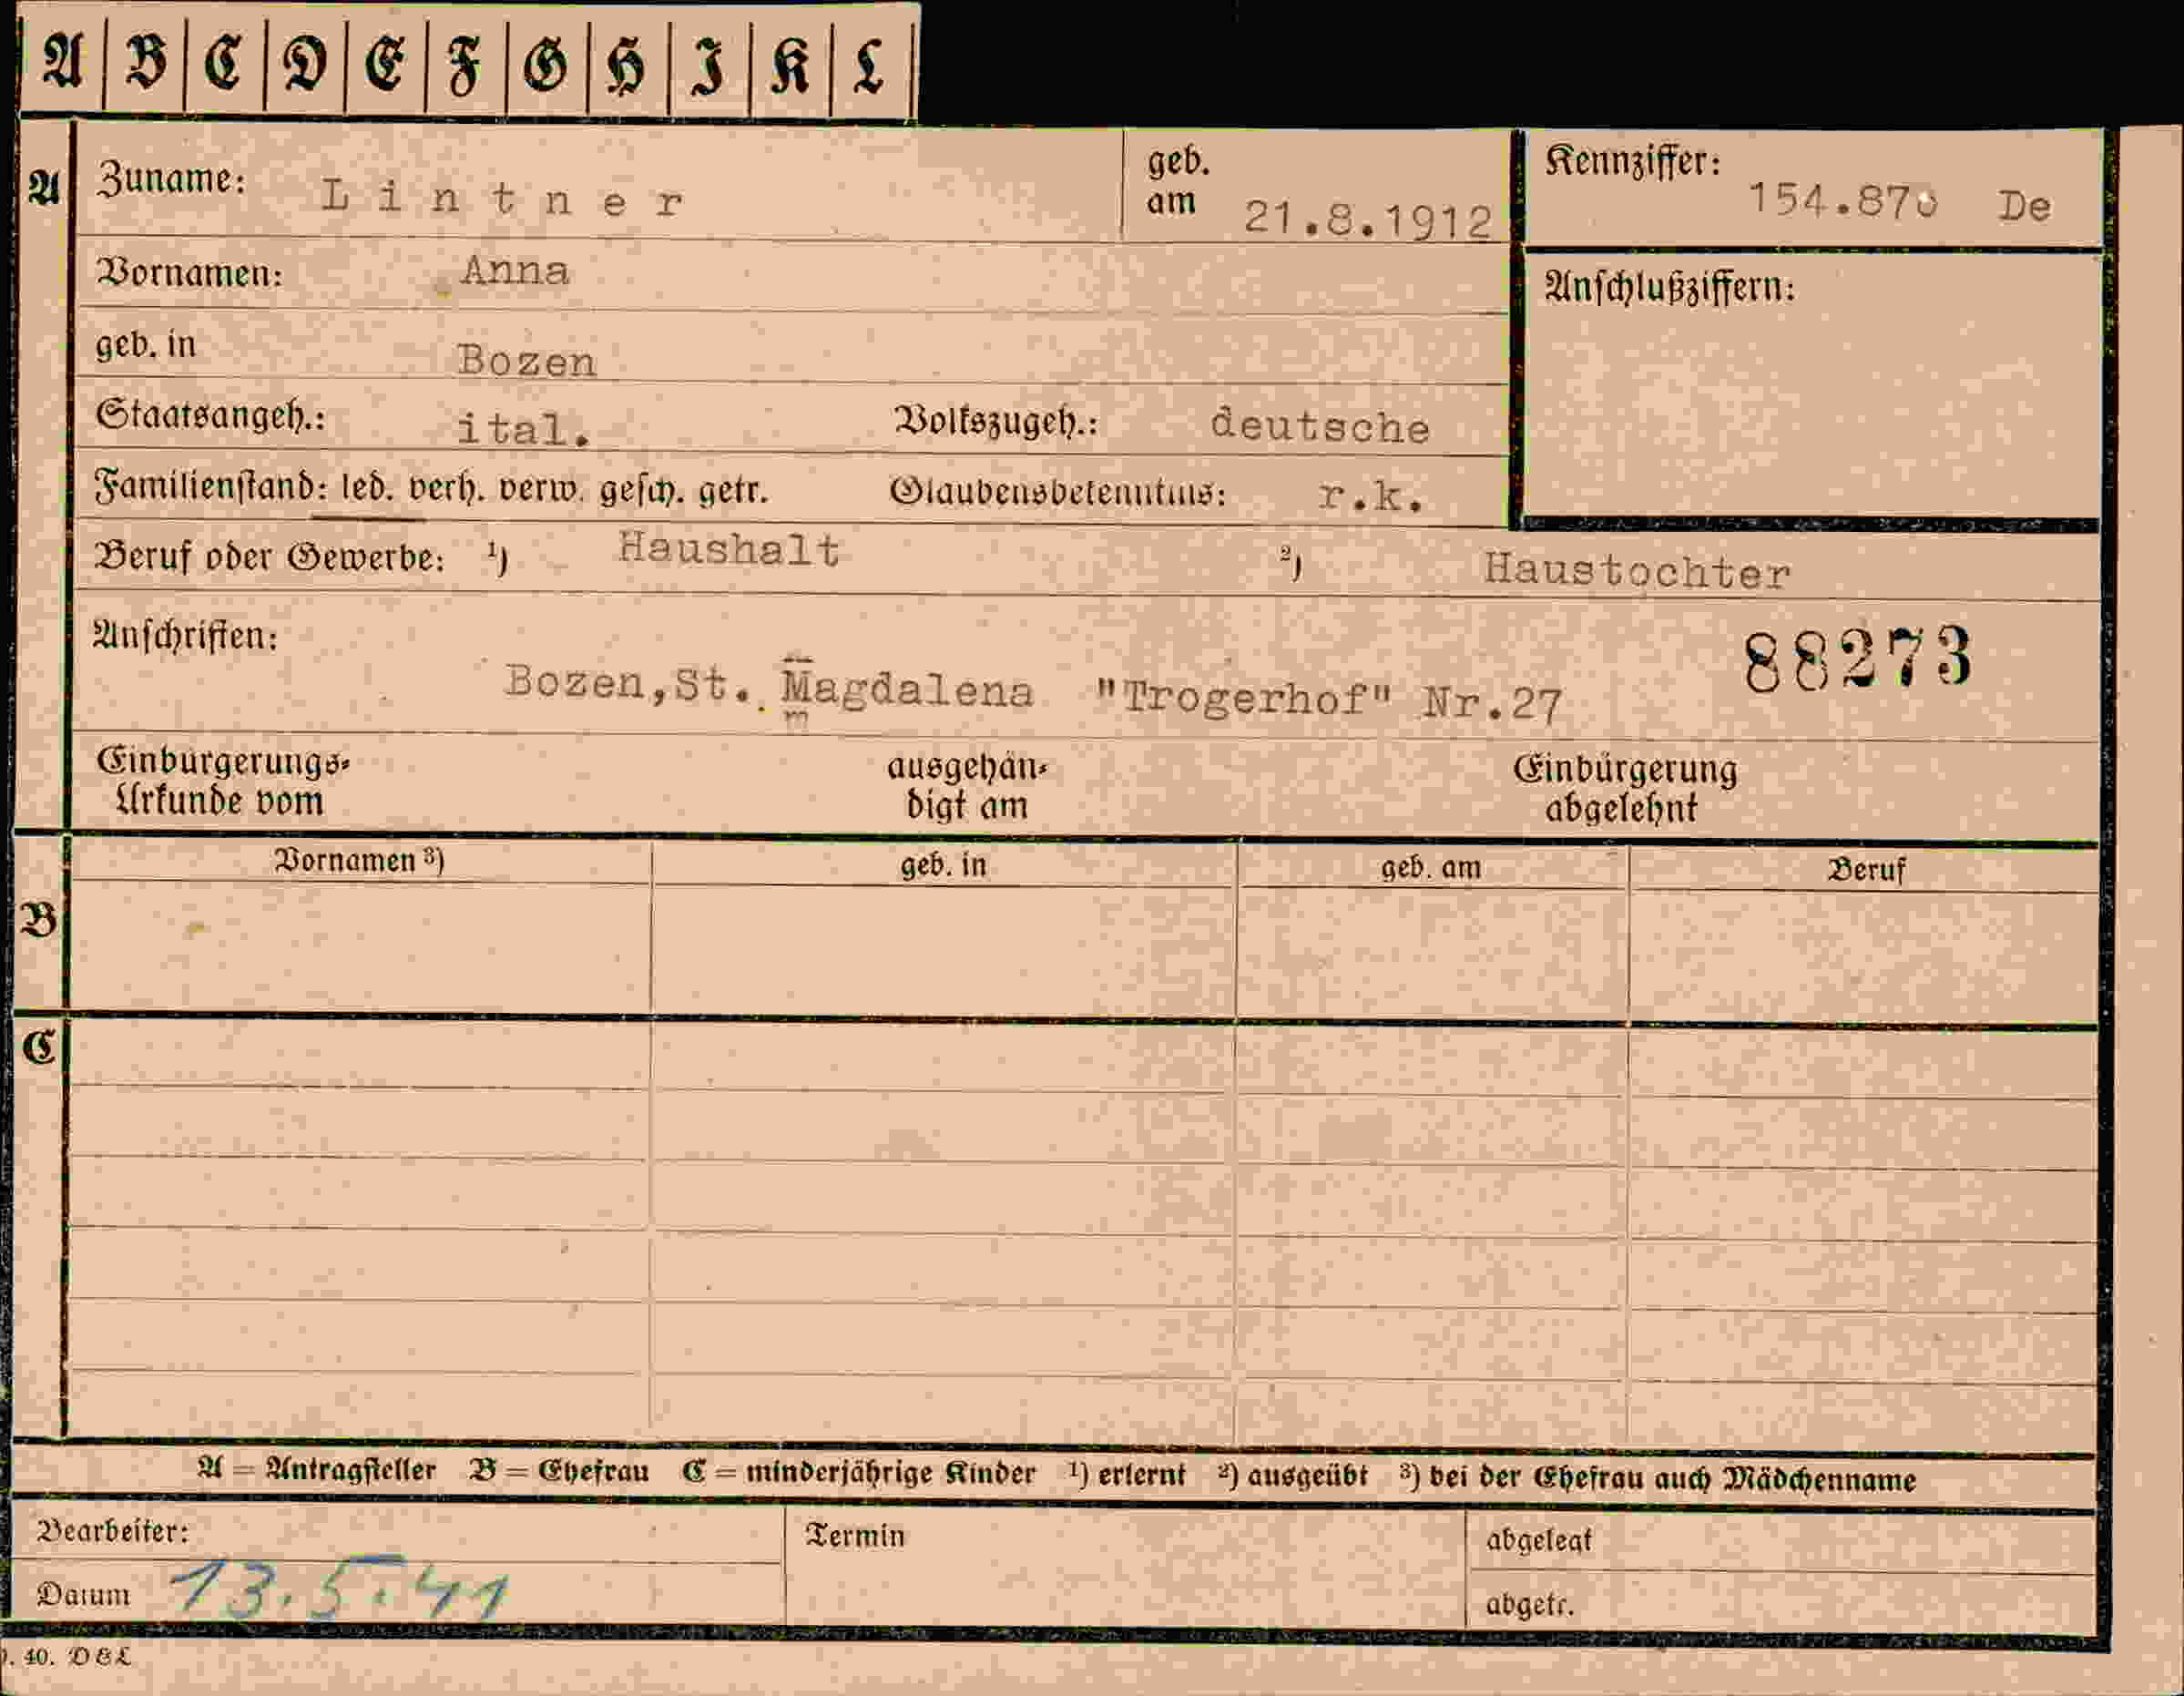 A B C D E F G H I K L
A Zuname: Lintner geb. am 21.8.1912 Kennziffer: 154.870 De
Vornamen: Anna Anschlußziffern:
geb. in Bozen
Staatsangeh.: ital. Volkszugeh.: deutsche
Familienstand: led. verh. verw. gesch. getr. Glaubensbekenntnis: r.k.
Beruf oder Gewerbe: ¹) Haushalt ²) Haustochter
Anschriften: 88273
Bozen,St. Magdalena "Trogerhof" Nr.27
Einbürgerungs- ausgehän- Einbürgerung
Urkunde vom digt am abgelehnt
Vornamen ³) geb. in geb. am Beruf
B
C
A = Antragsteller B = Ehefrau C = minderjährige Kinder ¹) erlernt ²) ausgeübt ³) bei der Ehefrau auch Mädchenname
Bearbeiter: Termin abgelegt
Datum 13.5.41 abgetr.
40. DBL